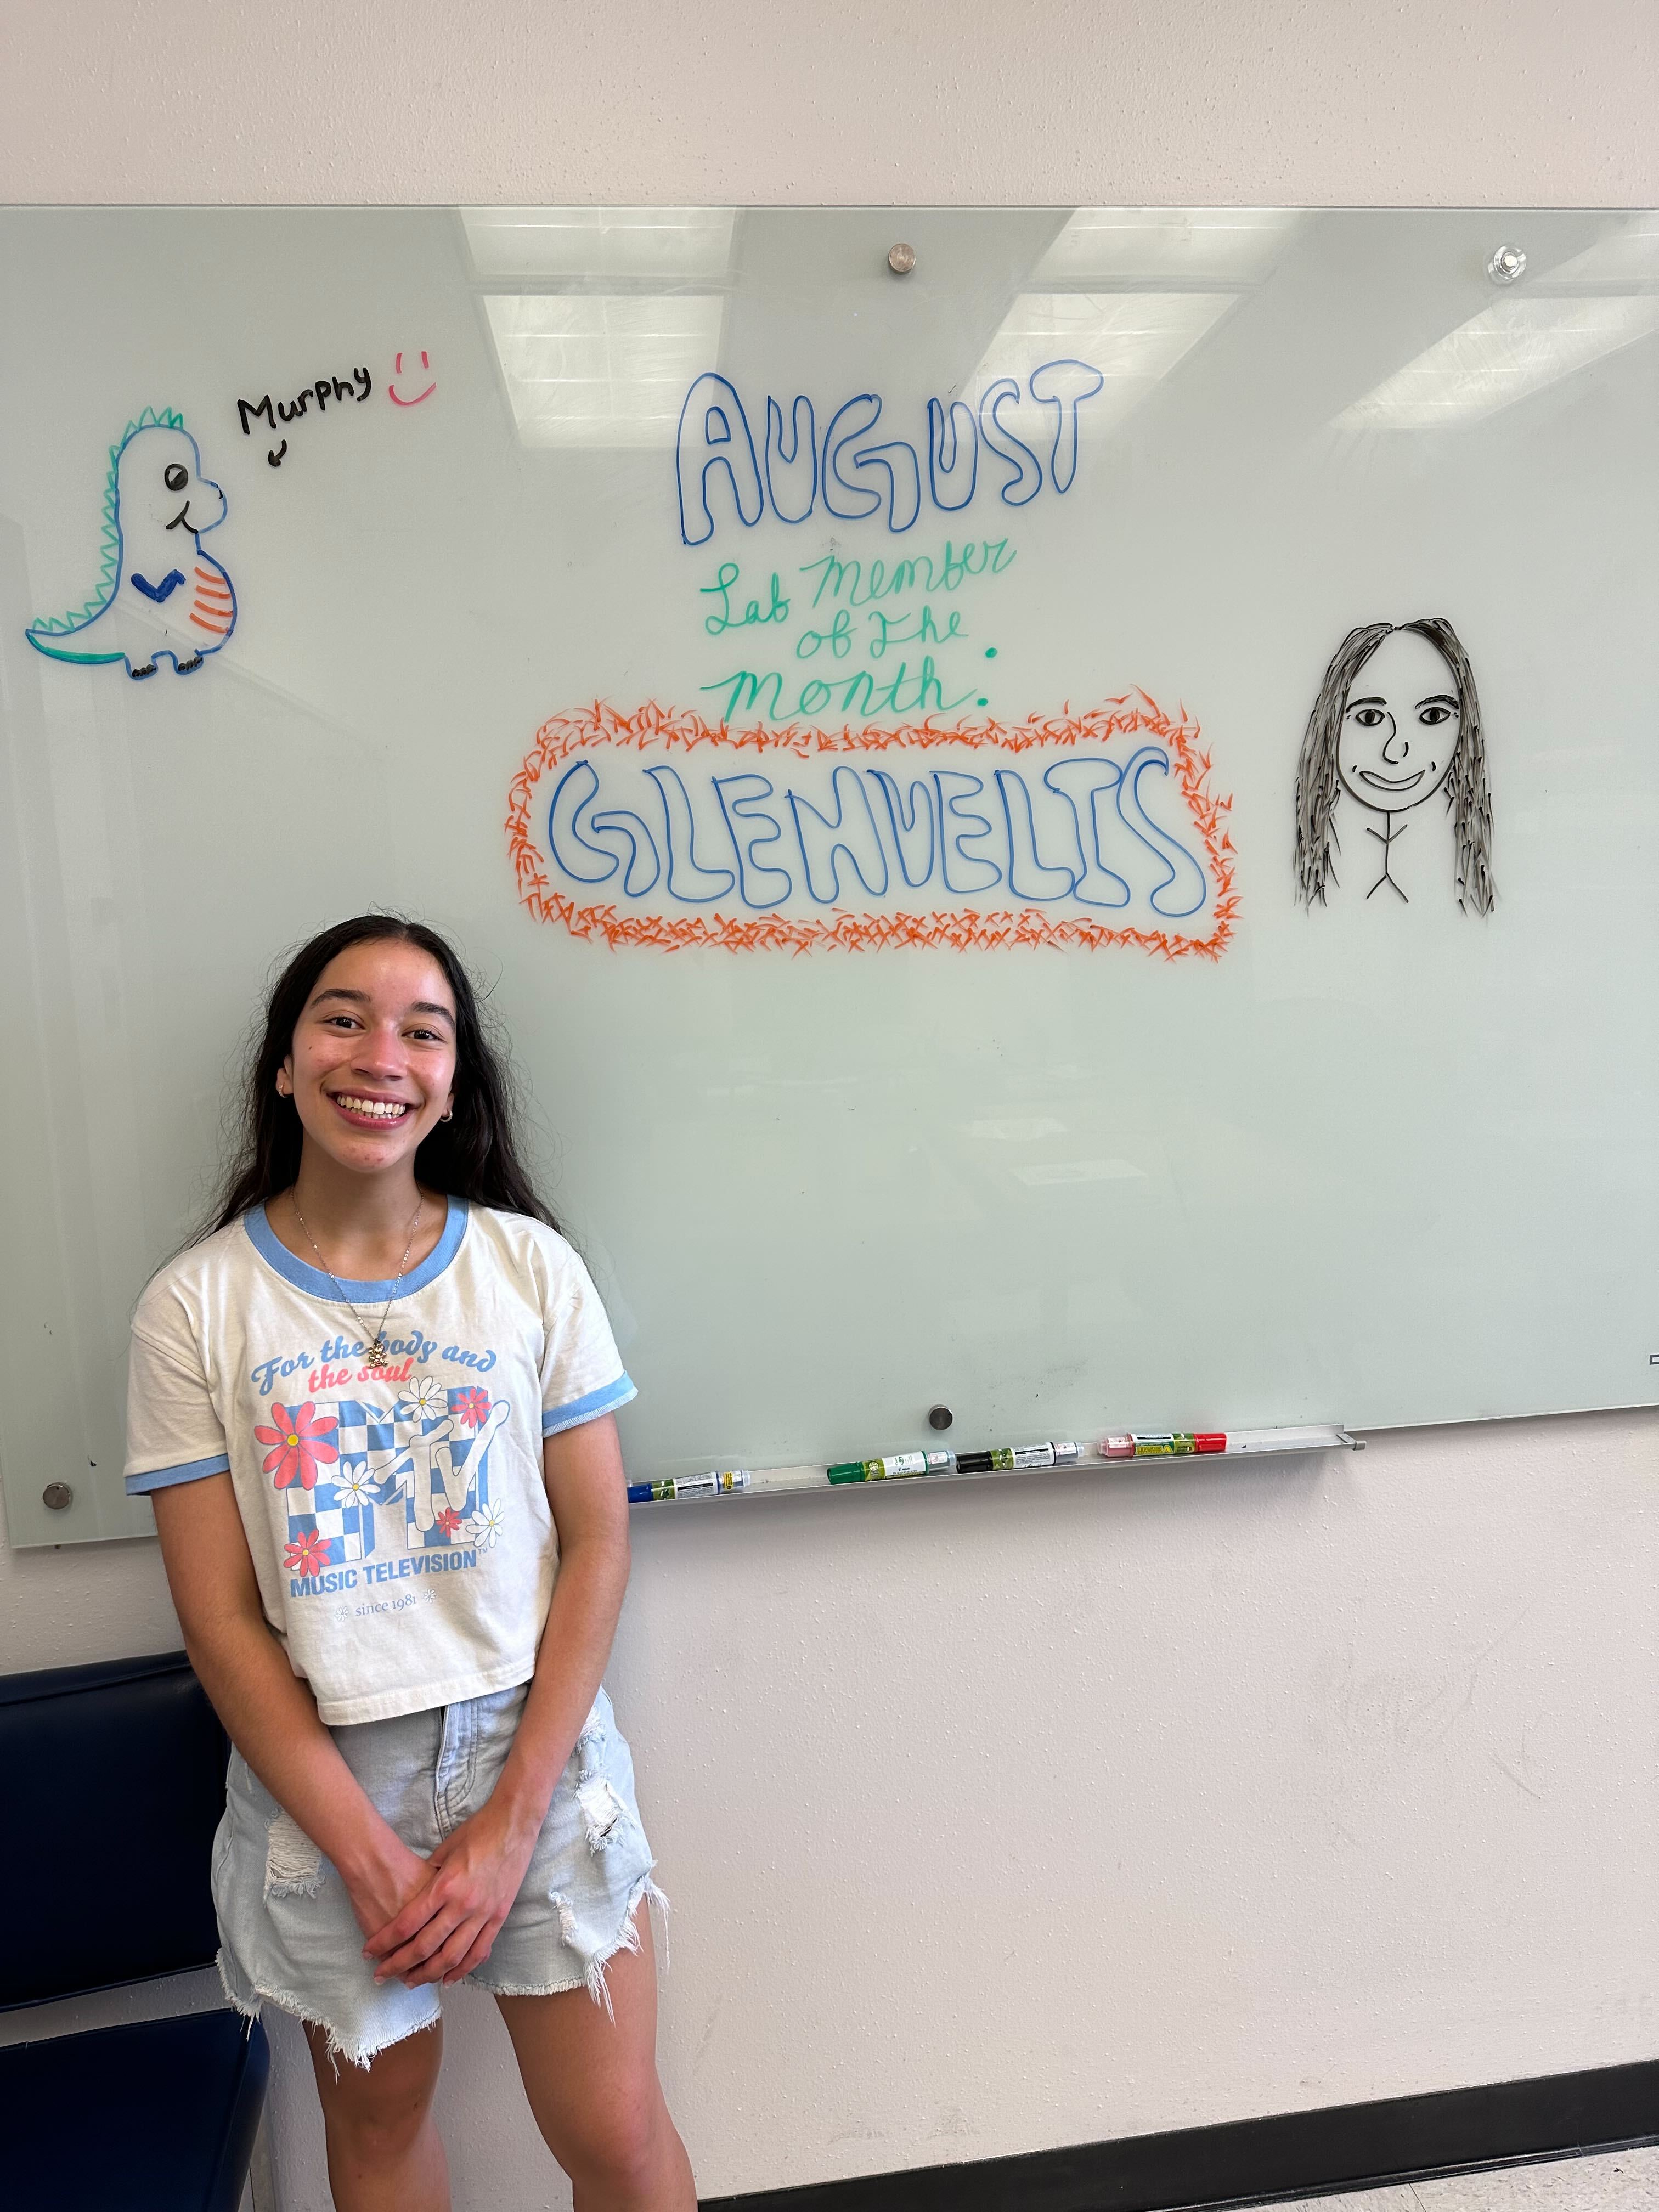 Murphy
AUGUST
Lab Member
of The
Month :
GLENVELIS
For the body and
the soul
MTV
MUSIC TELEVISION™
since 1981